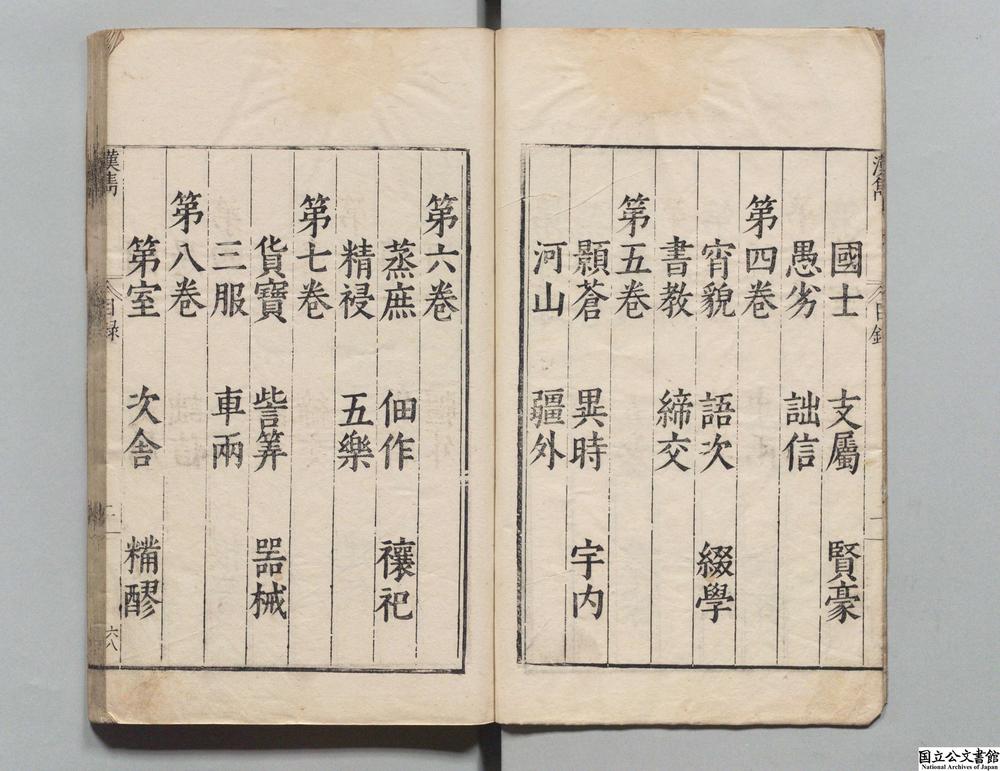 國士 支屬 賢豪
愚劣 詘信
第四卷
宵貌 語次 綴學
書教 締交
第五卷
顥蒼 異時 宇内
河山 疆外
第六卷
蒸庶 佃作 禳祀
精祲 五樂
第七卷
貨寶 訾筭 器械
三服 車兩
第八卷
第室 次舍 糒醪
漢雋
目録
二
六八
国立公文書館
National Archives of Japan